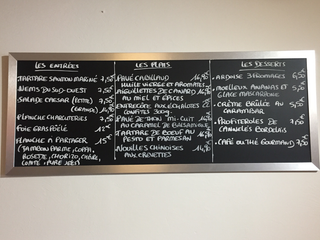 LES ENTRÉES
TARTARE SAUMON MARINÉ 7,50€
NEMS DU SUD-OUEST 7,50€
SALADE CAESAR (PETITE) 7,50€
(GRANDE) 14,90€
PLANCHE CHARCUTERIES 7,50€
FOIE GRAS POÊLÉ 12€
PLANCHE À PARTAGER 15€
(JAMBON PARME, COPPA,
ROSETTE, CHORIZO, CHÈVRE,
COMTÉ, PURE BREBIS
LES PLATS
PAVÉ CABILLAUD 16,90€
HUILE VIERGE ET AROMATES
AIGUILLETTES DE CANARD 16,90€
AU MIEL ET ÉPICES
ENTRECÔTE AUX ÉCHALOTES 22€
CONFITES 300g
PAVÉ DE THON "MI-CUIT" 16,90€
AU CARAMEL DE BALSAMIQUE
TARTARE DE BOEUF AU 16,90€
PESTO ET PARMESAN
NOUILLES CHINOISES 14,90€
AUX CREVETTES
LES DESSERTS
ARDOISE 3 FROMAGES 6,50€
MOELLEUX ANANAS ET 5,50€
GLACE MASCARPONE
CRÈME BRÛLÉE AU 5,50€
CARAMBAR
PROFITEROLES DE 7,50€
CANNELÉS BORDELAIS
CAFÉ OU THÉ GOURMAND 7,50€